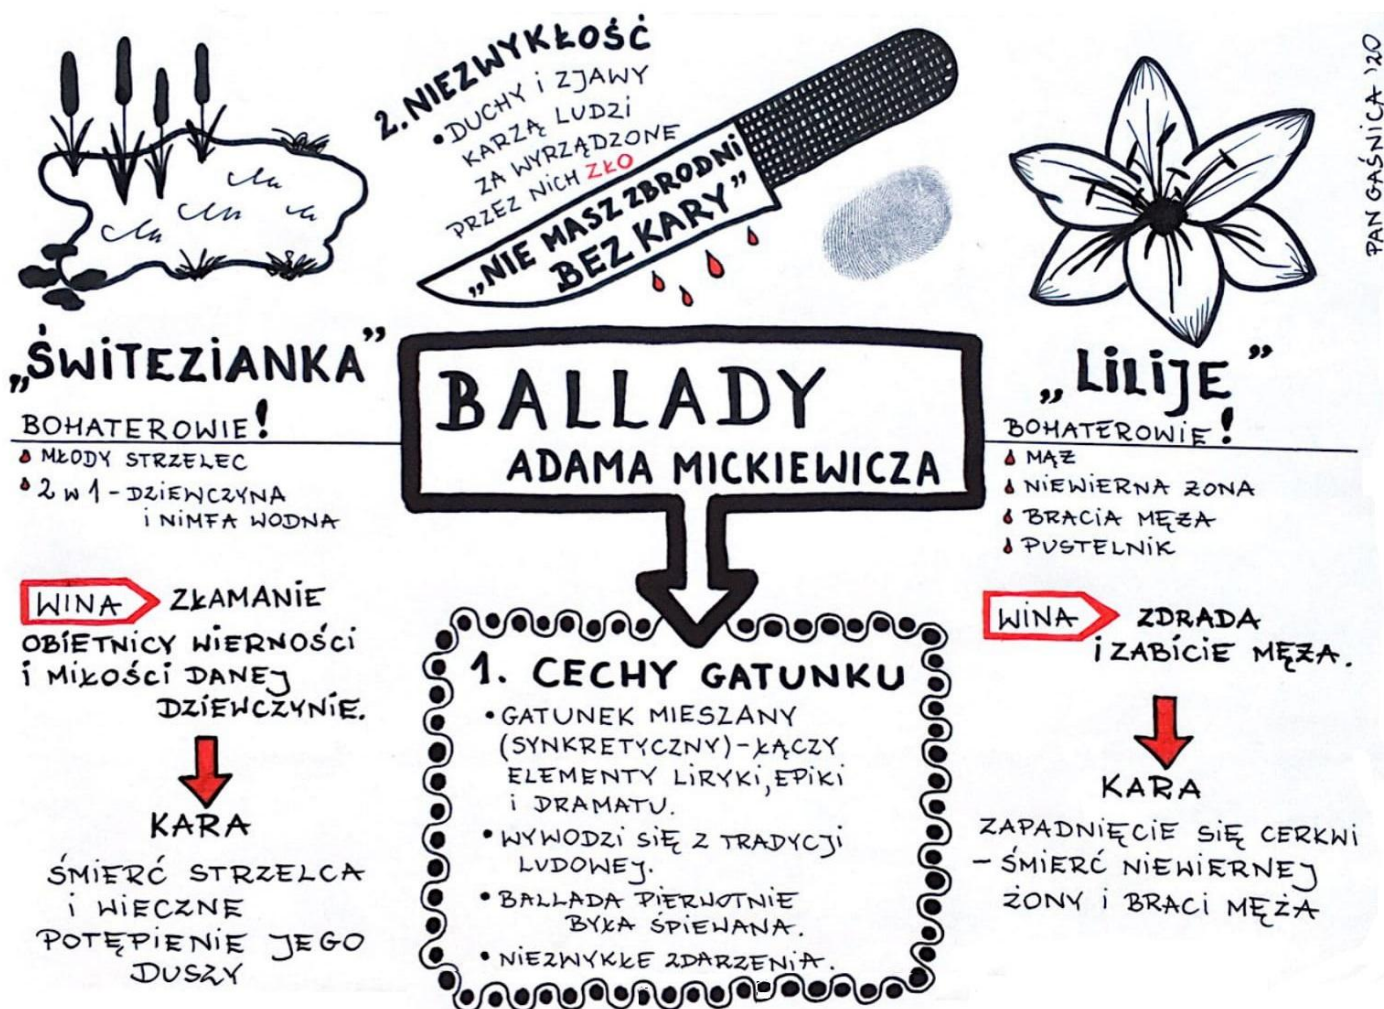 2. NIEZWYKŁOŚĆ
• DUCHY I ZJAWY
KARZĄ LUDZI
ZA WYRZĄDZONE
PRZEZ NICH ZŁO
„NIE MASZ ZBRODNI
BEZ KARY”
PAN GAŚNICA '20
„ŚWITEZIANKA”
BOHATEROWIE!
MŁODY STRZELEC
2 W 1 - DZIEWCZYNA
I NIMFA WODNA
WINA ZŁAMANIE
OBIETNICY WIERNOŚCI
I MIŁOŚCI DANEJ
DZIEWCZYNIE.
KARA
ŚMIERĆ STRZELCA
I WIECZNE
POTĘPIENIE JEGO
DUSZY
BALLADY
ADAMA MICKIEWICZA
1. CECHY GATUNKU
• GATUNEK MIESZANY
(SYNKRETYCZNY) - ŁĄCZY
ELEMENTY LIRYKI, EPIKI
I DRAMATU.
• WYWODZI SIĘ Z TRADYCJI
LUDOWEJ.
• BALLADA PIERWOTNIE
BYŁA ŚPIEWANA.
• NIEZWYKŁE ZDARZENIA.
„LILIJE”
BOHATEROWIE!
MĄŻ
NIEWIERNA ŻONA
BRACIA MĘŻA
PUSTELNIK
WINA ZDRADA
I ZABICIE MĘŻA.
KARA
ZAPADNIĘCIE SIĘ CERKWI
- ŚMIERĆ NIEWIERNEJ
ŻONY I BRACI MĘŻA